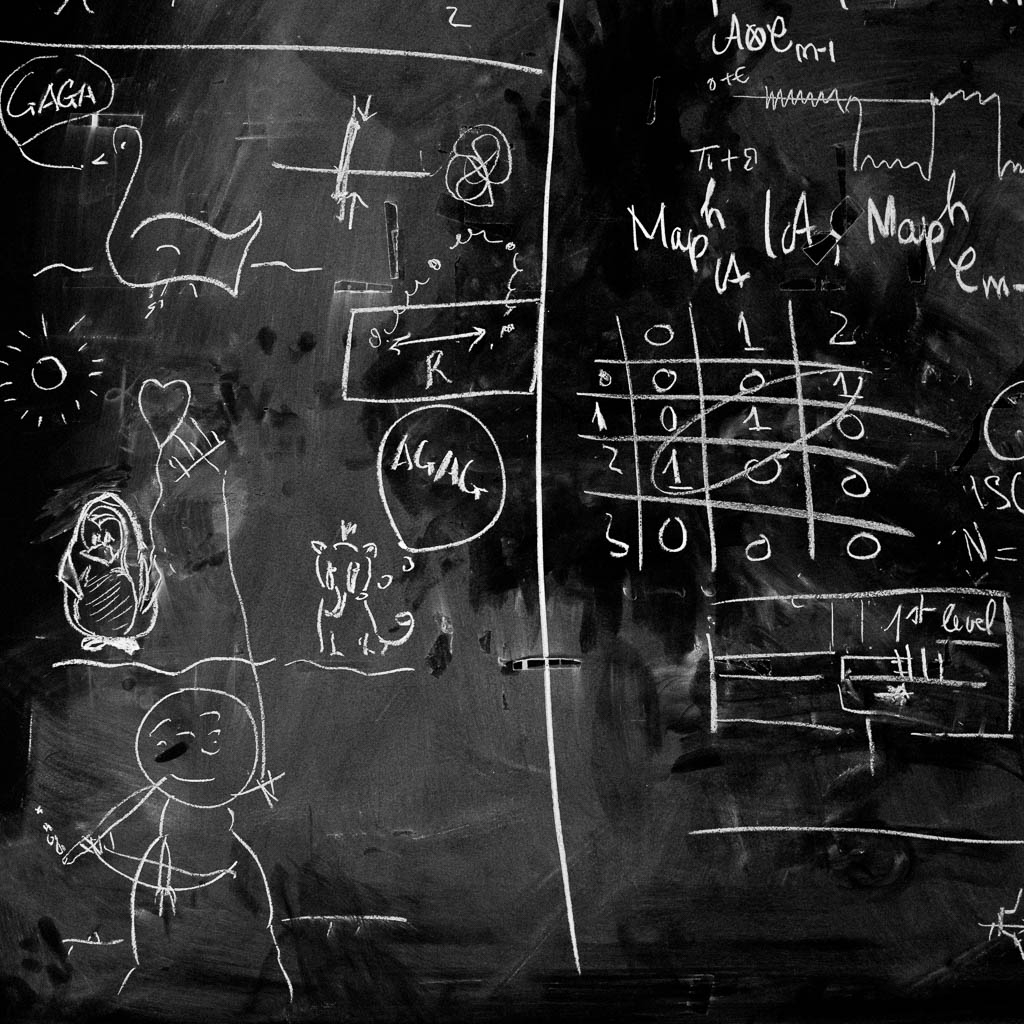 2
GAGA
R
AGAG
A⊗C m-1
π+ε
Map^h_A (A, Map^h_C m-
0 1 2
0 0 0 1
1 0 1 0
2 1 0 0
3 0 0 0
N=
1st level